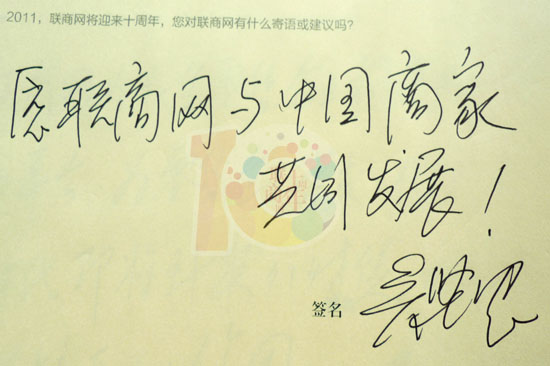 2011，联商网将迎来十周年，您对联商网有什么寄语或建议吗？
愿联商网与中国商家
共同发展！
签名